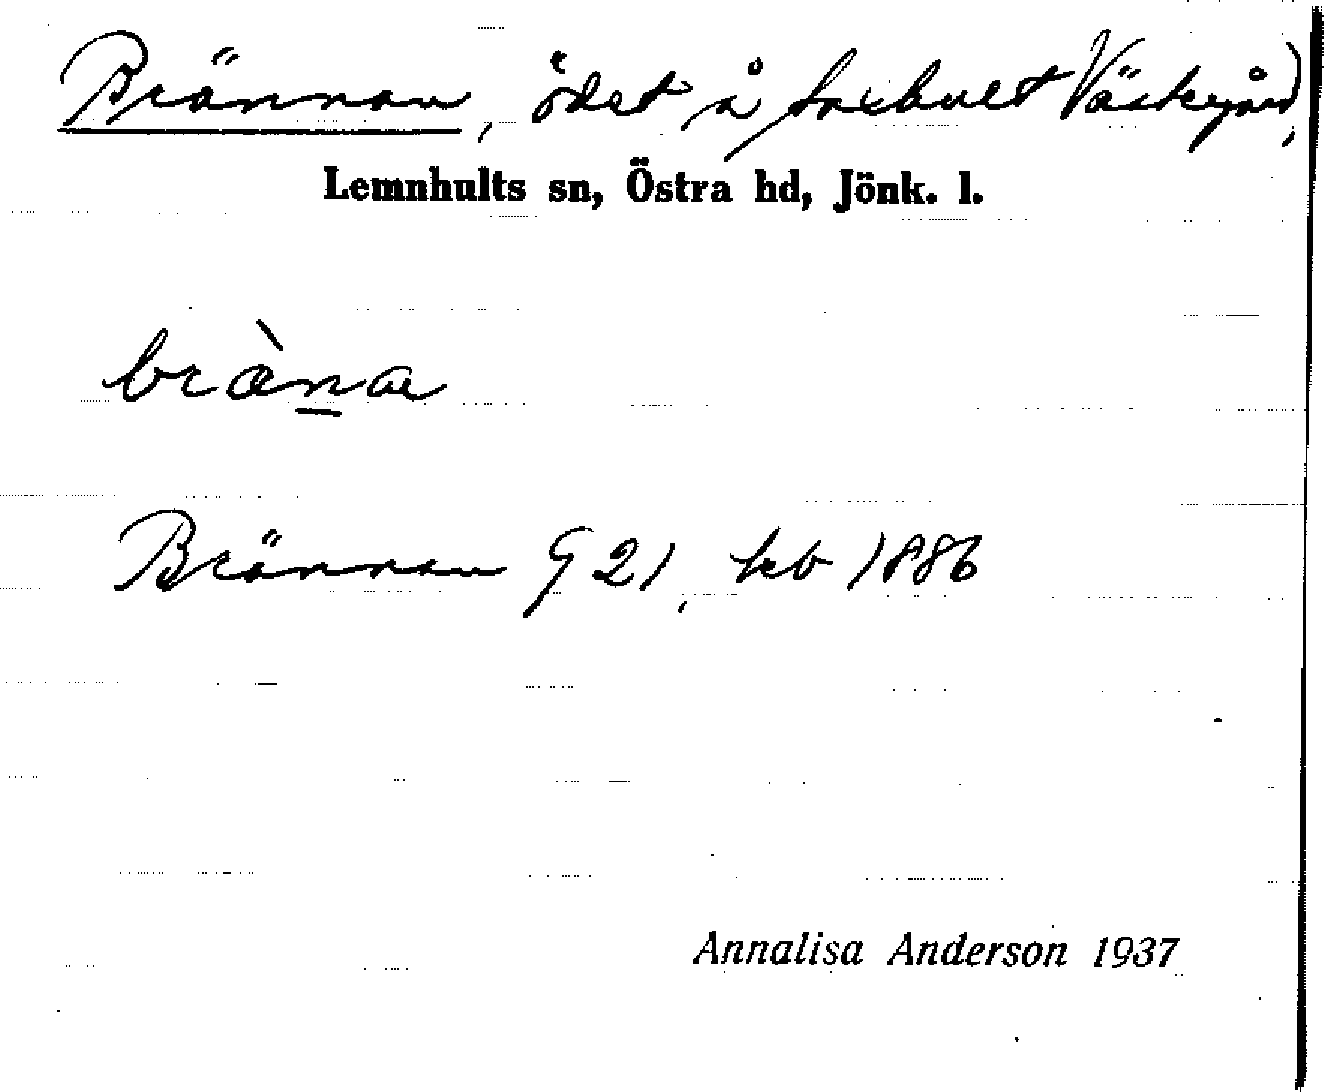 Brännan, ödet å Saxhult Västergård,
Lemnhults sn, Östra hd, Jönk. l.
bràna
Brännan G 21, kb 1886
Annalisa Anderson 1937